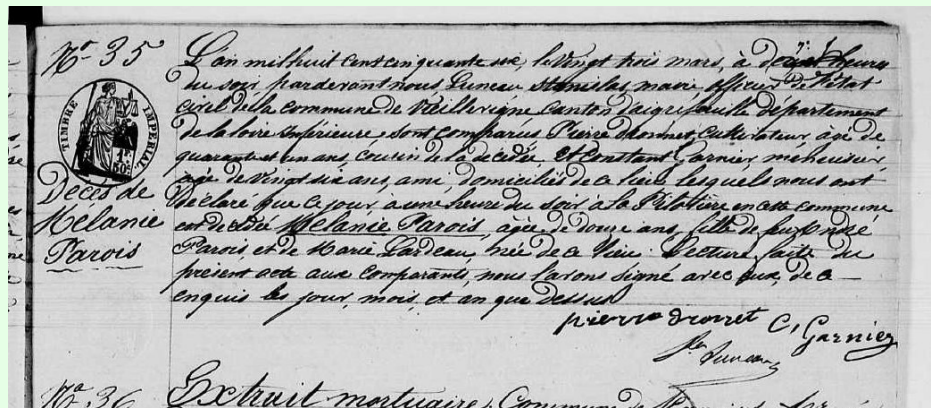 No. 35
TIMBRE IMPERIAL
1F. 50c.
Decès de
Mélanie
Parois
L'an mil huit cent cinquante six, le vingt trois mars, à deux heures
du soir pardevant nous Luneau Stanislas, maire officier de l'état
civil de la commune de Vieillevigne canton d'aigrefeuille département
de la loire inférieure, sont comparus Pierre Drouet, cultivateur, âgé de
quarante et un ans, cousin de la décédée, et Constant Garnier, menuisier
âgé de vingt six ans, ami, domiciliés de ce lieu, lesquels nous ont
déclaré que ce jour à une heure du soir à la Pilotière en cette commune
est décédée Mélanie Parois, âgée de douze ans, fille de feu
Parois et de Marie Lardeau, née de ce lieu. Lecture faite du
présent acte aux comparants, nous l'avons signé avec eux, de ce
enquis les jour, mois, et an que dessus
pierre Drouet C, Garnier
Luneau
No. 36
Extrait mortuaire, Commune de